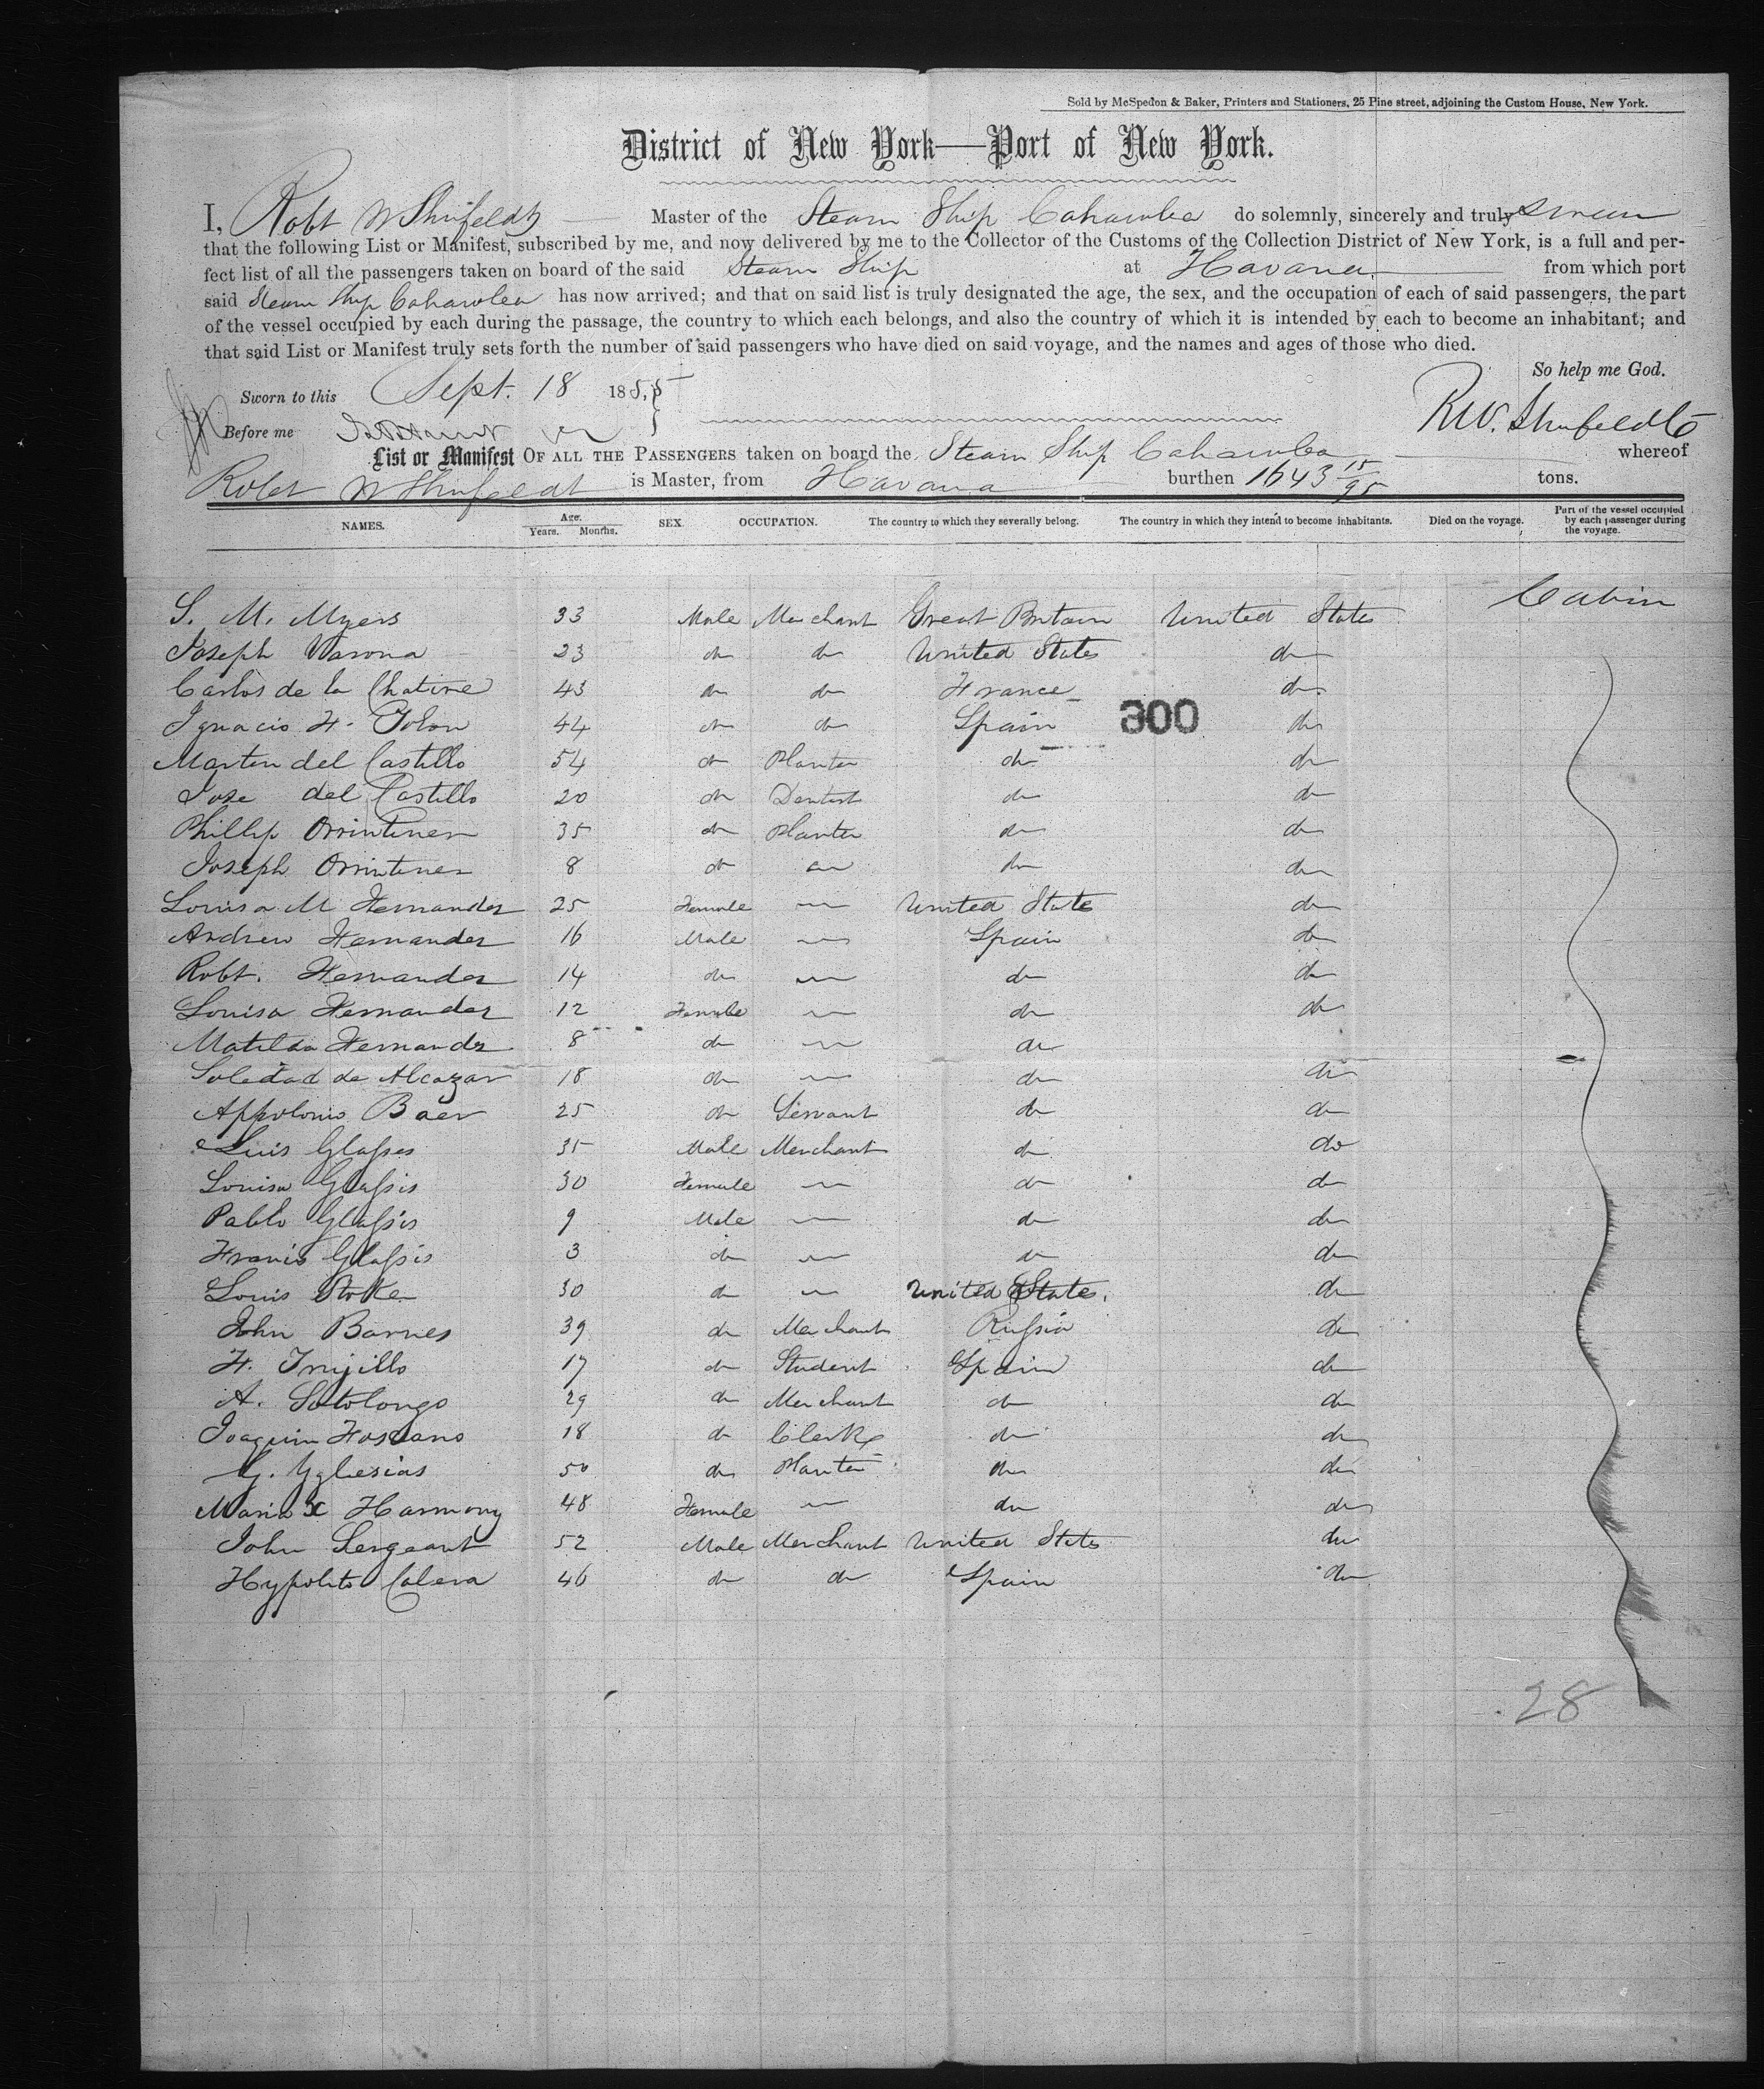 Sold by McSpedon & Baker, Printers and Stationers, 25 Pine street, adjoining the Custom House, New York.
District of New York—Port of New York.
I, Robt W Shufeldt Master of the Steam Ship Cahawba do solemnly, sincerely and truly swear
that the following List or Manifest, subscribed by me, and now delivered by me to the Collector of the Customs of the Collection District of New York, is a full and per-
fect list of all the passengers taken on board of the said Steam Ship at Havana from which port
said Steam Ship Cahawba has now arrived; and that on said list is truly designated the age, the sex, and the occupation of each of said passengers, the part
of the vessel occupied by each during the passage, the country to which each belongs, and also the country of which it is intended by each to become an inhabitant; and
that said List or Manifest truly sets forth the number of said passengers who have died on said voyage, and the names and ages of those who died.
So help me God.
Sworn to this Sept. 18 1855
R W. Shufeldt
Before me
List or Manifest OF ALL THE PASSENGERS taken on board the Steam Ship Cahawba whereof
Robt W Shufeldt is Master, from Havana burthen 1643 15/95 tons.
NAMES. Age. Years. Months. SEX. OCCUPATION. The country to which they severally belong. The country in which they intend to become inhabitants. Died on the voyage. Part of the vessel occupied by each passenger during the voyage.
S. M. Myers 33 Male Merchant Great Britain United States Cabin
Joseph Varona 23 do do United States do
Carlos de la Chatire 43 do do France do
Ignacio F. Tolon 44 do do Spain 300 do
Marten del Castillo 54 do Planter do do
Jose del Castillo 20 do Dentist do do
Phillip 35 do Planter do do
Joseph 8 do do do
Louisa M Hernandez 25 Female — United States do
Andrew Hernandez 16 Male — Spain do
Robt. Hernandez 14 do — do do
Louisa Hernandez 12 Female — do do
Matilda Hernandz 8 do — do
Soledad de Alcazar 18 do — do do
Appolonio Baer 25 do Servant do do
Luis Glasses 35 Male Merchant do do
Louisa Glassis 30 Female — do do
Pablo Glassis 9 Male — do do
Francis Glassis 3 do — do do
Louis Stoke 30 do — United States. do
John Barnes 39 do Merchant Russia do
F. Trujillo 17 do Student Spain do
A. Sotolongo 29 do Merchant do do
Joaquin 18 do Clerk do do
G. Yglesias 50 do Planter do do
Maria X Harmony 48 Female — do do
John Sergeant 52 Male Merchant United States do
Hypolito Calera 46 do do Spain do
28